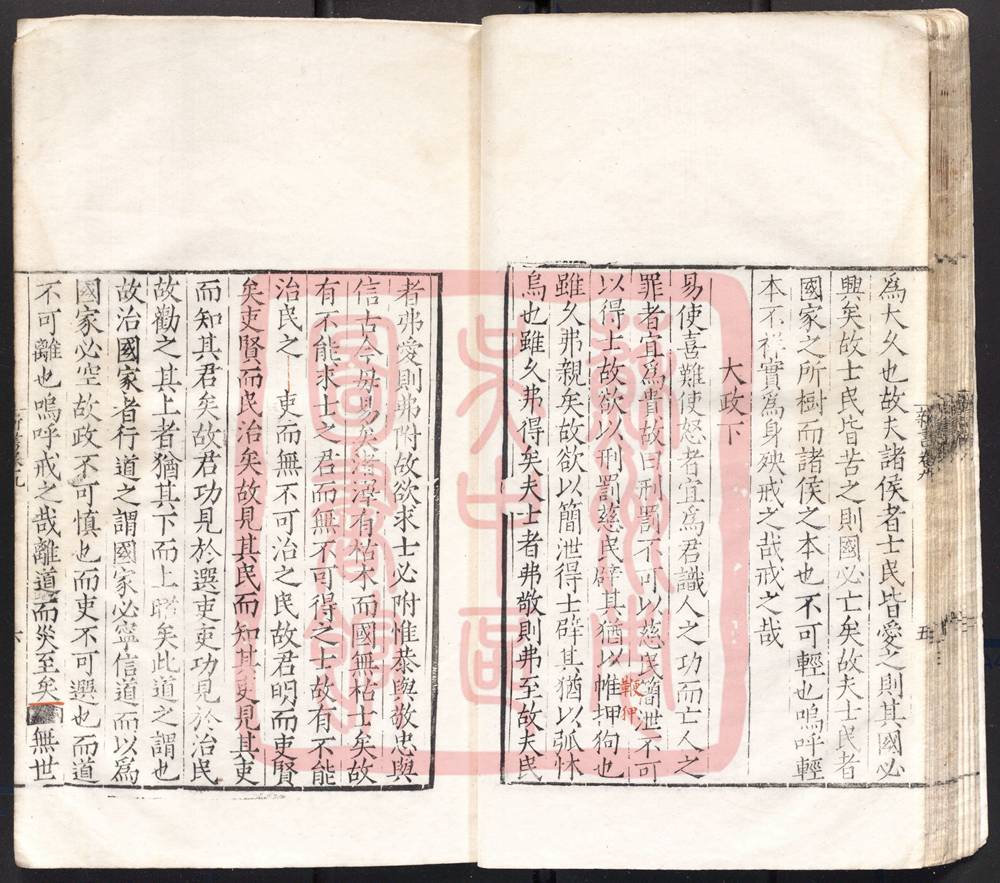 為大久也故夫諸侯者士民皆愛之則其國必
興矣故士民皆苦之則國必亡矣故夫士民者
國家之所樹而諸侯之本也不可輕也嗚呼輕
本不祥實為身殃戒之哉戒之哉
大政下
易使喜難使怒者宜為君識人之功而亡人之
罪者宜為貴故曰刑罰不可以慈民簡泄不可
以得士故欲以刑罰慈民辟其猶以帷狎狗也
鞭狎
雖久弗親矣故欲以簡泄得士辟其猶以弧怵
鳥也雖久弗得矣夫士者弗敬則弗至故夫民
者弗愛則弗附故欲求士必附惟恭與敬忠與
信古今毋易矣渚澤有枯木而國無枯士矣故
有不能求士之君而無不可得之士故有不能
治民之 吏而無不可治之民故君明而吏賢
矣吏賢而民治矣故見其民而知其吏見其吏
而知其君矣故君功見於選吏吏功見於治民
故勸之其上者猶其下而上 矣此道之謂也
故治國家者行道之謂國家必寧信道而以為
國家必空故政不可慎也而吏不可選也而道
不可離也嗚呼戒之哉離道而災至矣 無世
新書卷九
五
六